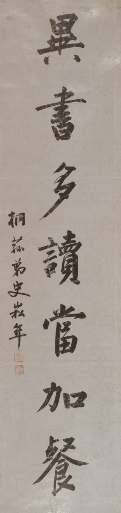 異書多讀當加餐
桐蓀弟史崧年